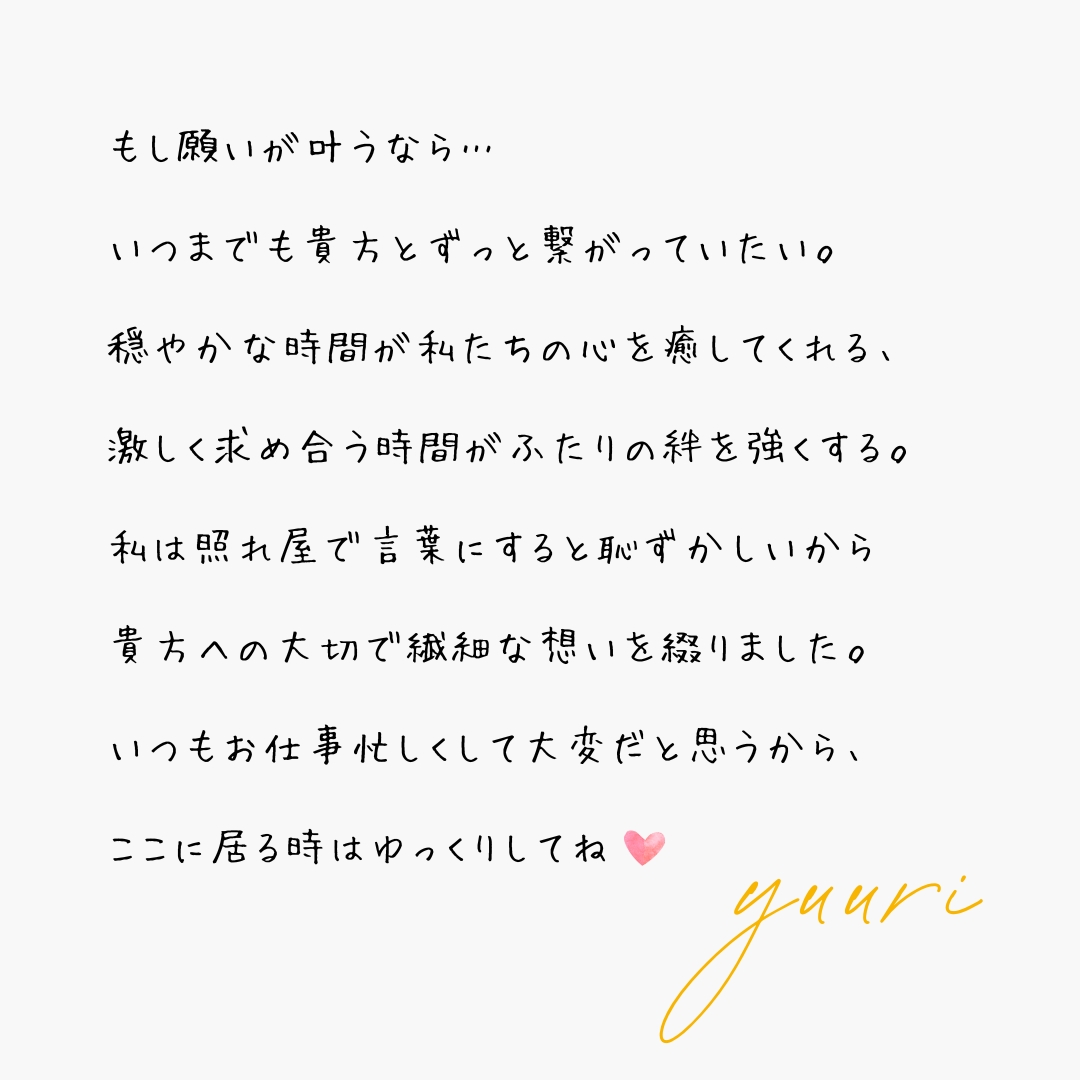 もし願いが叶うなら…
いつまでも貴方とずっと繋がっていたい。
穏やかな時間が私たちの心を癒してくれる、
激しく求め合う時間がふたりの絆を強くする。
私は照れ屋で言葉にすると恥ずかしいから
貴方への大切で繊細な想いを綴りました。
いつもお仕事忙しくして大変だと思うから、
ここに居る時はゆっくりしてね
yuuri